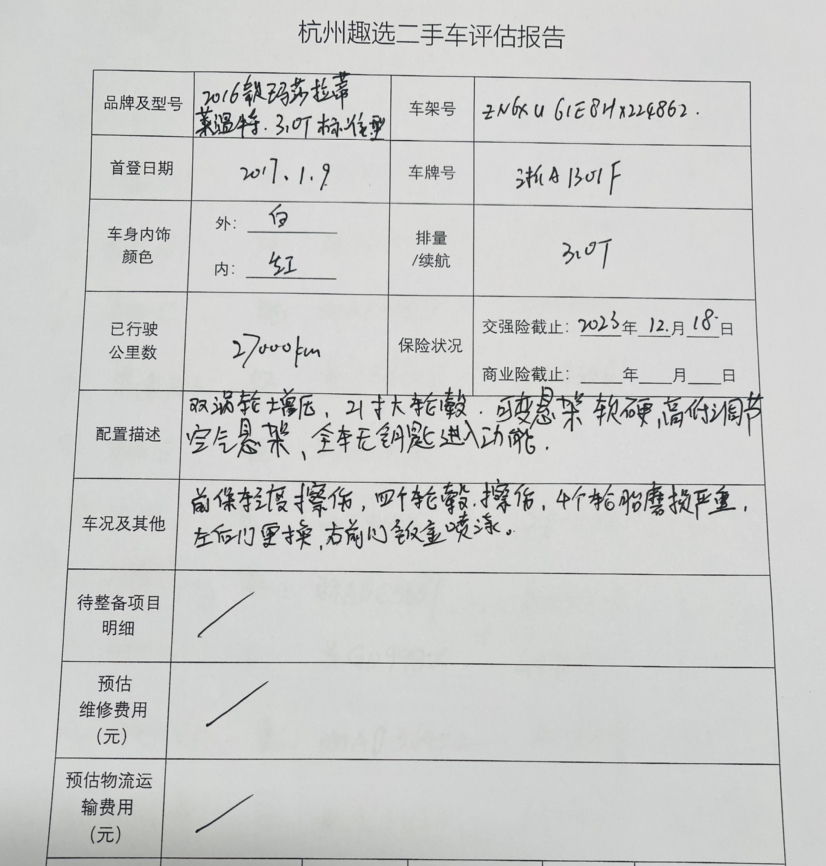 杭州趣选二手车评估报告
品牌及型号
2016款玛莎拉蒂
莱温特. 3.0T标准型
车架号
ZN6XU61E8HX224862.
首登日期
2017.1.9
车牌号
浙A1301F
车身内饰
颜色
外: 白
内: 红
排量
/续航
3.0T
已行驶
公里数
27000km
保险状况
交强险截止: 2023年12月18日
商业险截止: 年 月 日
配置描述
双涡轮增压, 21寸大轮毂. 可变悬架软硬,高低调节
空气悬架, 全车无钥匙进入功能.
车况及其他
前保轻度擦伤, 四个轮毂擦伤, 4个轮胎磨损严重,
左后门更换, 右前门钣金喷漆。
待整备项目
明细
预估
维修费用
(元)
预估物流运
输费用
(元)